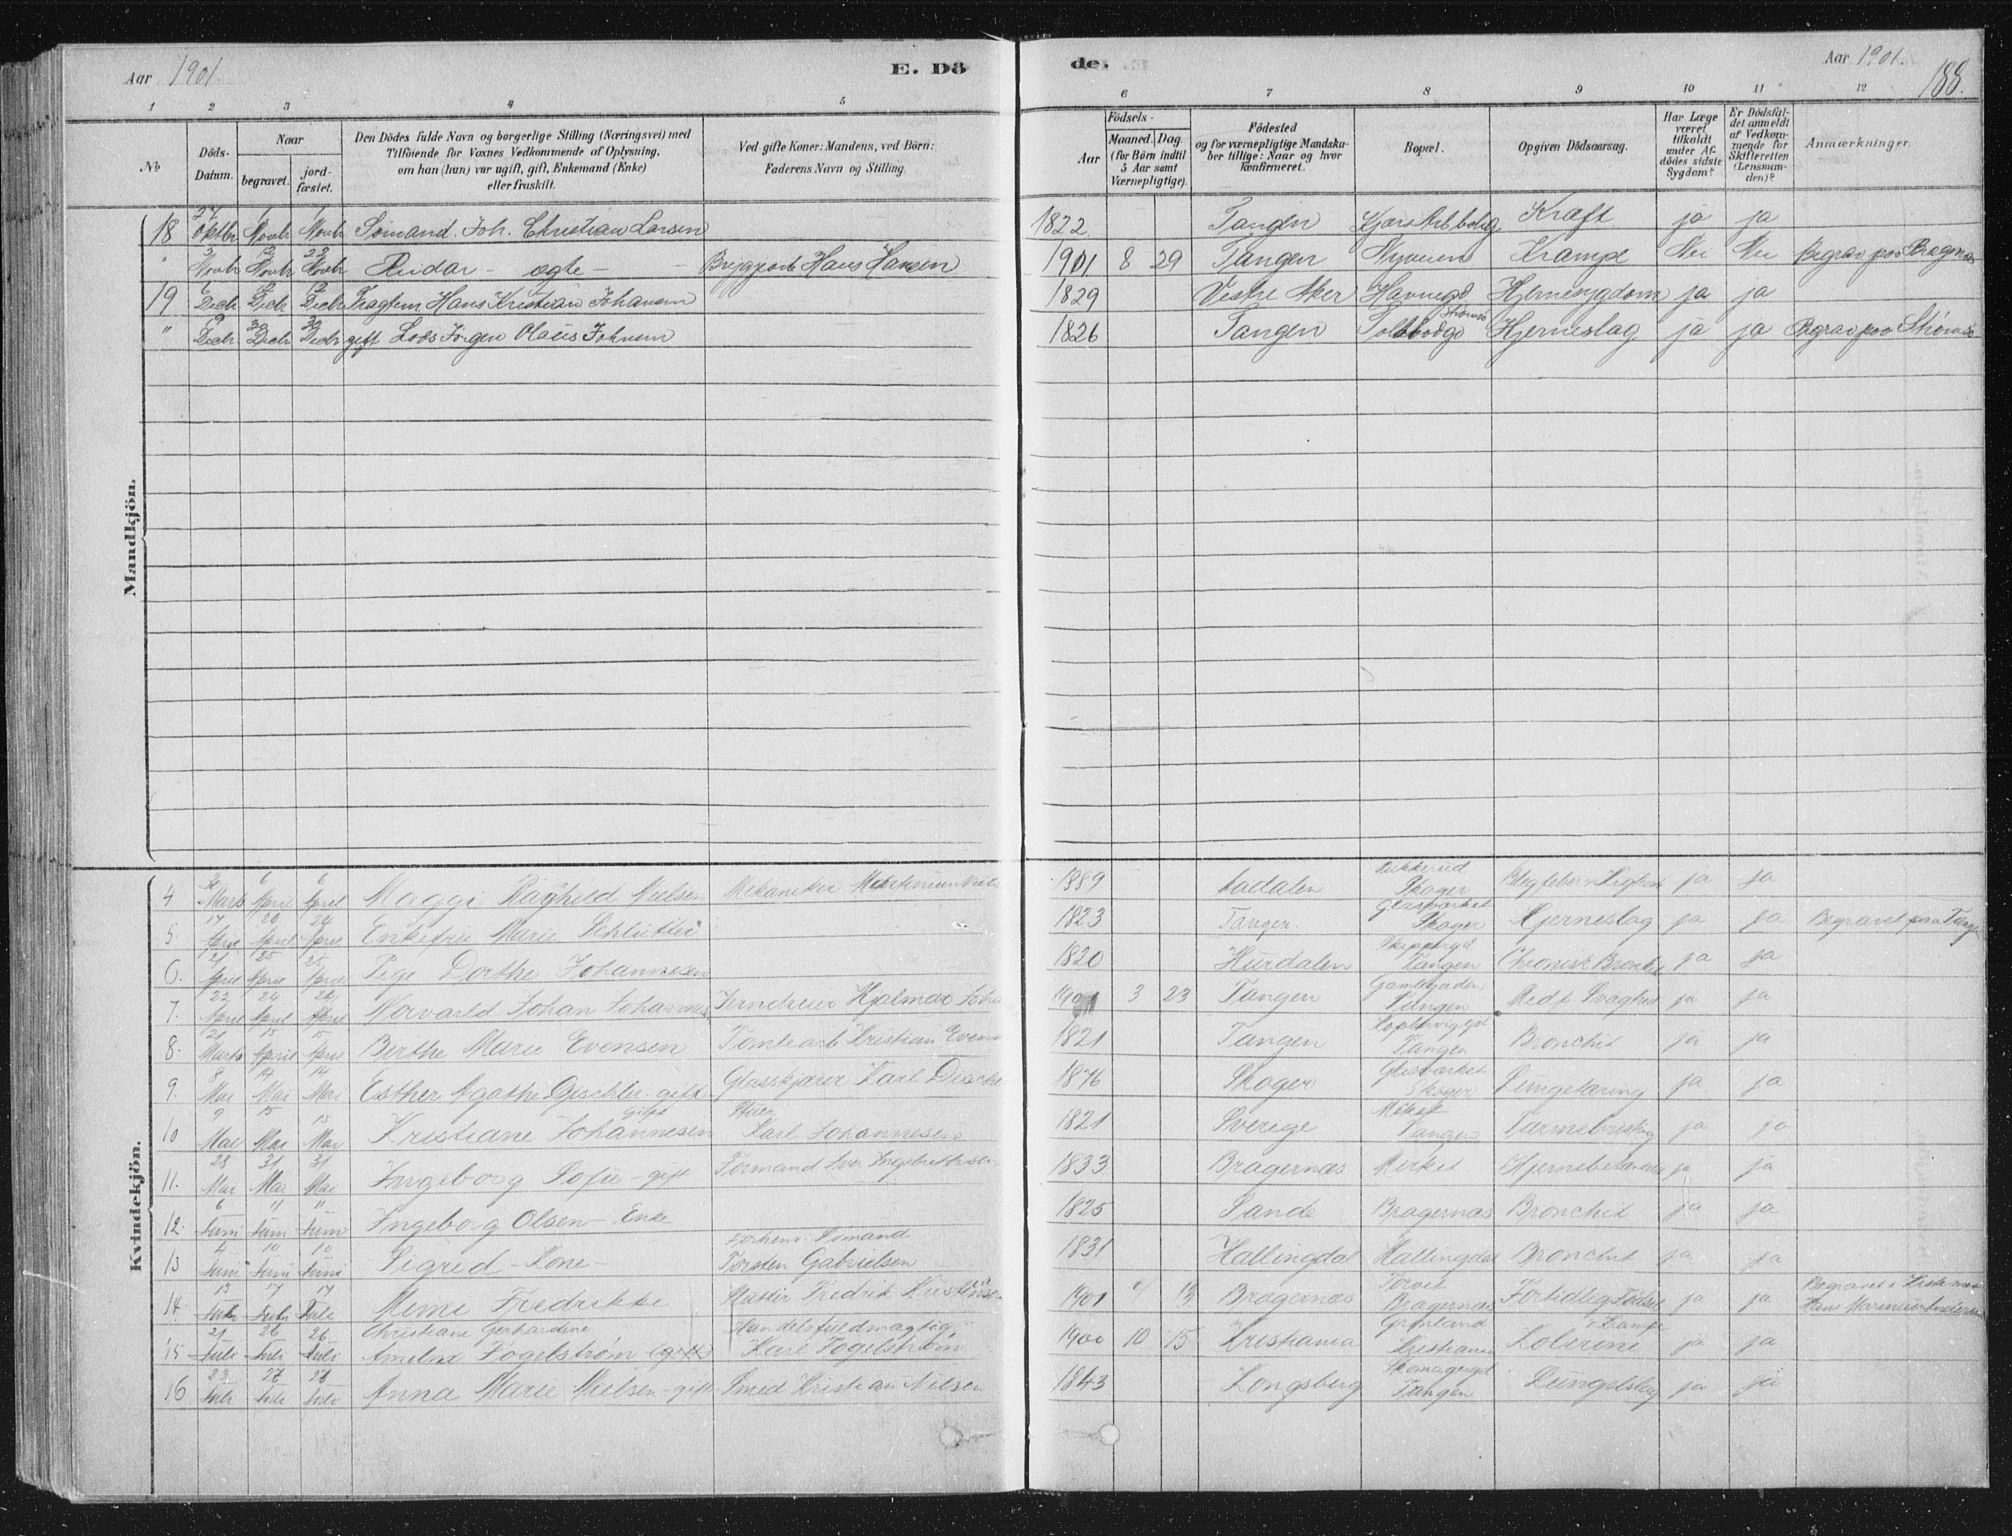 Aar 1901. E. Dö de. Aar 1901. 188.
1 2 3 4 5 6 7 8 9 10 11 12
No
Döds-Datum.
Naar
begravet. jordfæstet.
Den Dödes fulde Navn og borgerlige Stilling (Næringsvei) med
Tilföiende for Voxnes Vedkommende af Oplysning,
om han (hun) var ugift, gift, Enkemand (Enke)
eller fraskilt.
Ved gifte Koner: Mandens, ved Börn:
Faderens Navn og Stilling.
Födsels-
Aar
Maaned. Dag.
(for Börn indtil
5 Aar samt
Værnepligtige).
Födested
og for værnepligtige Mandskaber tillige: Naar og hvor
konfirmeret.
Bopæl.
Opgiven Dödsaarsag.
Har Læge
været
tilkaldt
under Afdödes sidste
Sygdom?
Er Dödsfaldet anmeldt
af Vedkommende for
Skifteretten
(Lensmanden)?
Anmærkninger.
Mandkjön.
18 27 Oktbr 1 Novbr 1 Novbr Sömand Joh. Christian Larsen 1822 Tangen Kræft ja ja
" Novbr Novbr 23 Novbr Reidar - ægte - Hans Hansen 1901 8 29 Tangen Nyveien Krampe Nei Nei Begrav. paa Bragernæs
19 6 Decbr 12 Decbr 12 Decbr Hans Kristian Johansen 1829 Vestre Aker Havnegd Hjernesygdom ja ja
" 9 Decbr 30 Decbr 30 Decbr gift Lods Jörgen Olaus Johnsen 1826 Tangen Toldbodgd Strömsö Hjerneslag ja ja Begrav paa Strömsö
Kvindekjön.
4 Marts 6 April 6 April Maggi Ragnhild Nielsen Mekaniker 1889 Aadalen Skoger ja ja
5 17 April 20 April 24 April Enkefru Marie Schlütter 1823 Tangen Glasværket Skoger Hjerneslag ja ja Begravet paa Tangen
6. 21 April 25 April 25 April Pige Dorthe Johannesen 1820 Hurdalen Skippergd Tangen Chronisk Bronchit ja ja
7. 22 April 24 April 24 April Johan Johannes Hjalmar 1901 3 23 Tangen Gamlegaden Tangen ja ja
8. 21 Marts 15 April 15 April Berthe Marie Evensen Tomtearb Kristian Evensen 1821 Tangen Tangen Bronchit ja ja
9. 8 Mai 14 Mai 14 Mai Esther Agathe Dischler - gift Glasskjærer Karl Dischler 1876 Skoger Glasværket Skoger Lungetæring ja ja
10 9 Mai 15 Mai 15 Mai Kristiane Johannesen gift Karl Johannesen 1821 Sverige Tangen ja ja
11. 28 Mai 31 Mai 31 Mai Ingeborg Sofie - gift Formand 1833 Bragernæs ja ja
12. 6 Juni 11 Juni 11 Juni Ingeborg Olsen - Enke 1825 Sande Bragernæs Bronchit ja ja
13 4 Juni 10 Juni 10 Juni Sigrid - Kone - Sömand Torsten Gabrielsen 1831 Hallingdal Hallingdal Bronchit ja ja
14. 13 Juli 17 Juli 17 Juli Mimi Fredrikke Fredrik 1901 13 Bragernæs Torvet Bragernæs Fortidlig Födsel ja ja Begravet i Kiste med Hans Marinius Andersen
15 21 Juli 26 Juli 26 Juli Christiane Gerhardine Ameline Fogelström Handelsfuldmægtig Karl Fogelström 1900 10 15 Kristiania Grönland Kristiania Kolerine ja ja
16 23 Juli 27 Juli 27 Juli Anna Marie Nielsen - gift Smed Kristian Nielsen 1843 Kongsberg Skomagergd Tangen Lungeslag ja ja